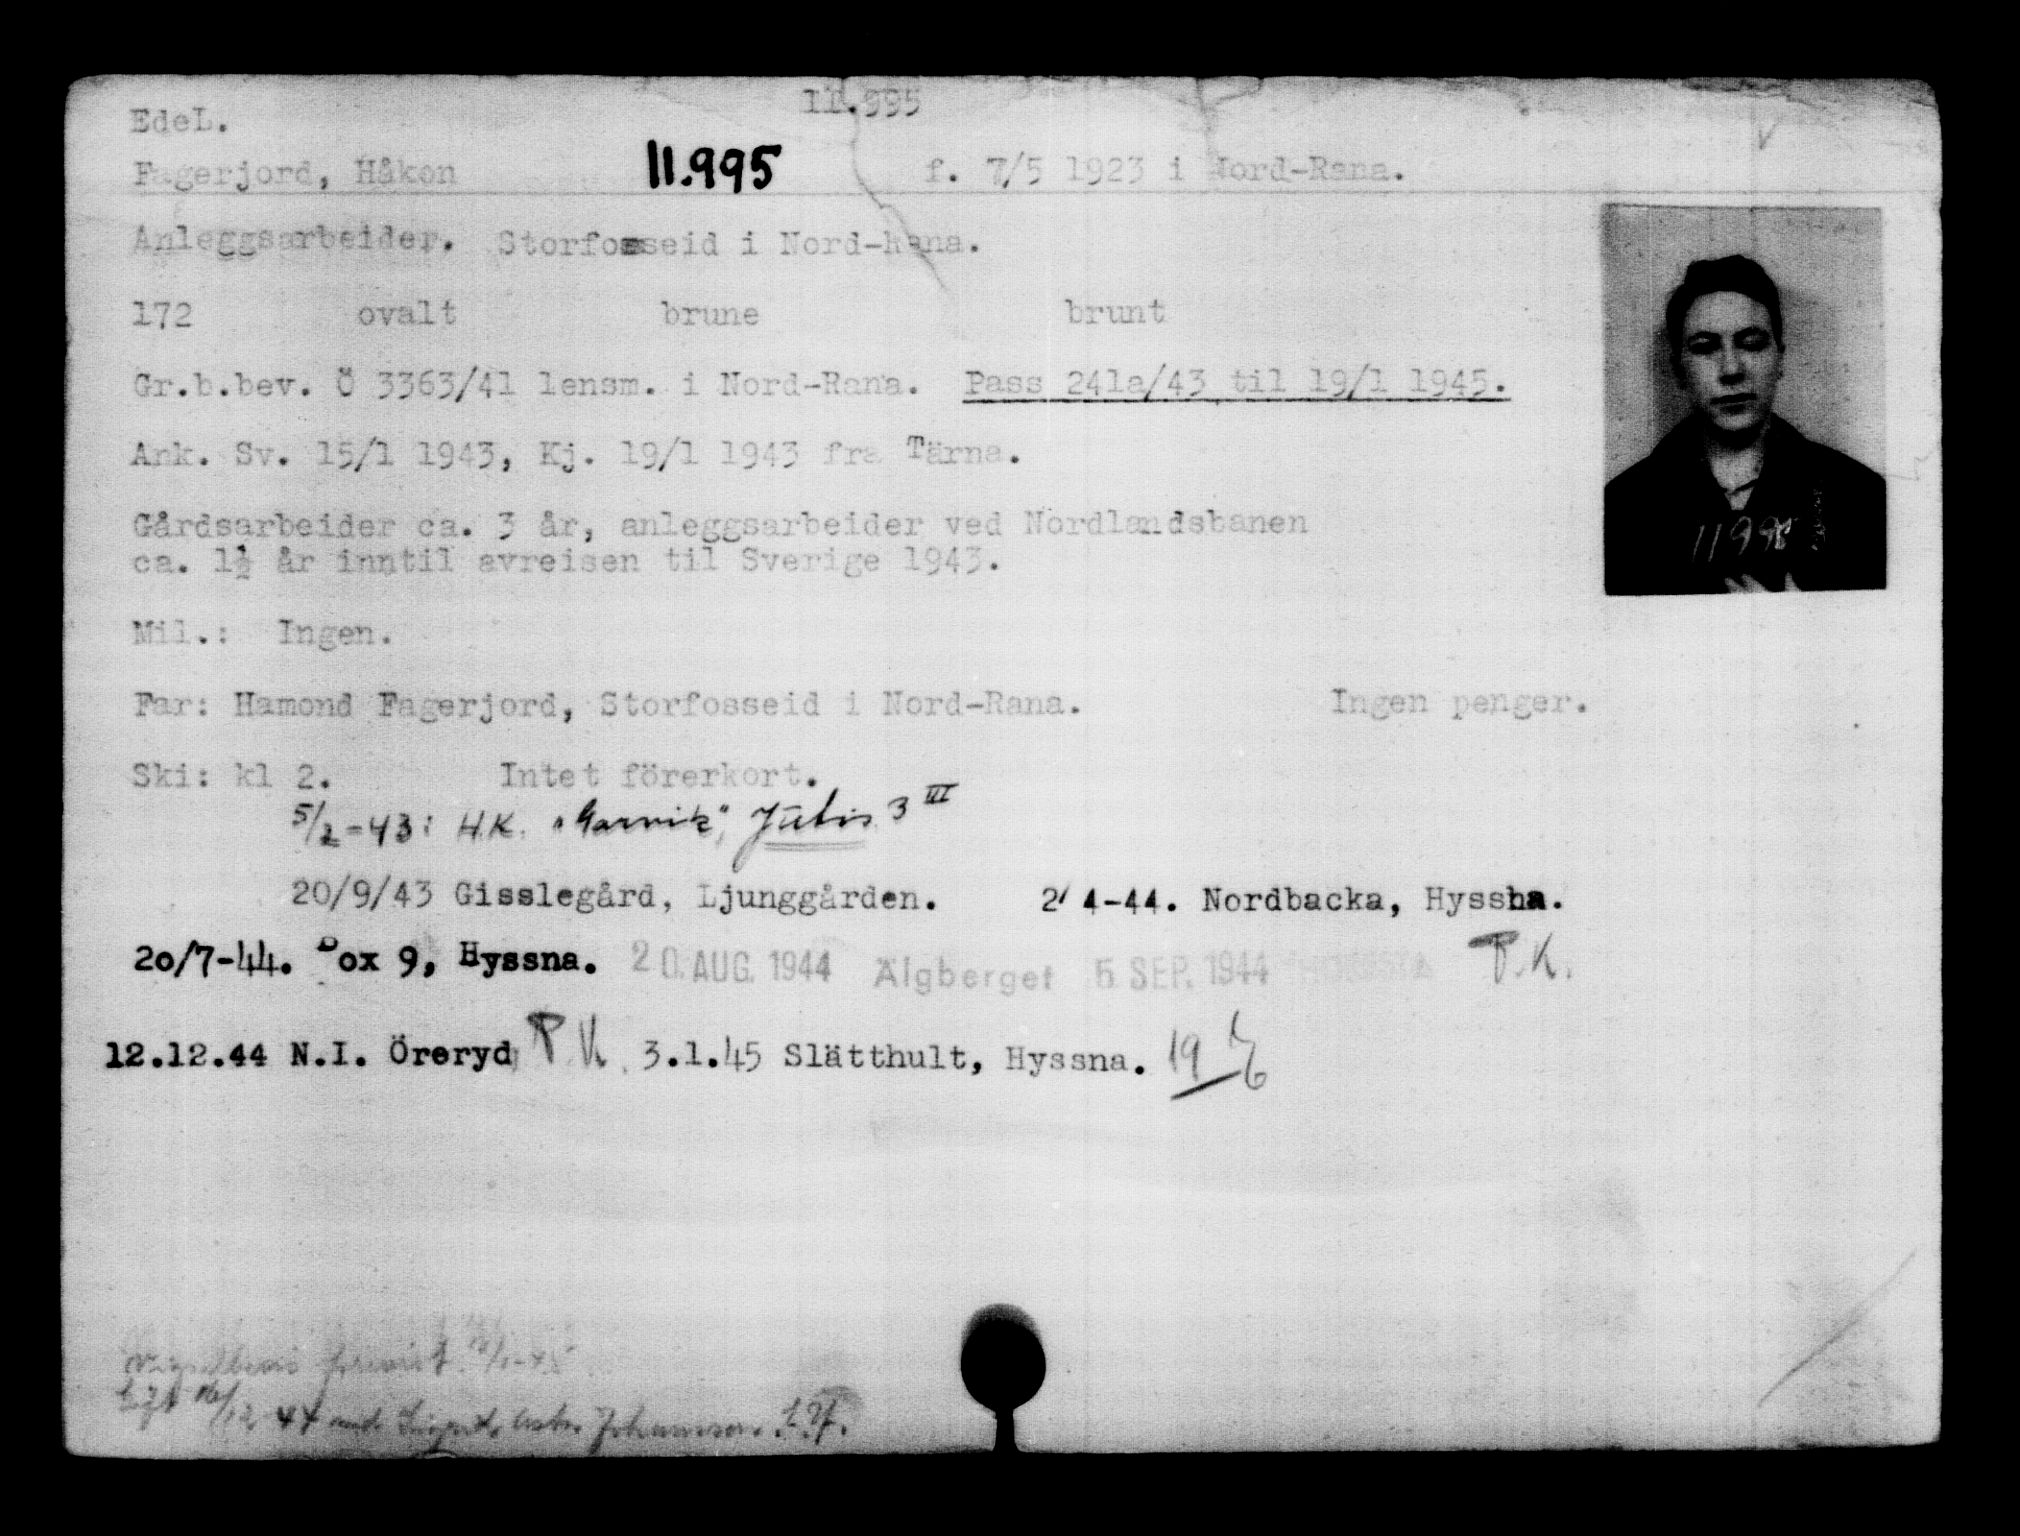 11.995
EdeL.
Fagerjord, Håkon 11.995 f. 7/5 1923 i Nord-Rana.
Anleggsarbeider. Storfosseid i Nord-Rana.
172 ovalt brune brunt
Gr.b.bev. Ö 3363/41 lensm. i Nord-Rana. Pass 241a/43 til 19/1 1945.
Ank. Sv. 15/1 1943, Kj. 19/1 1943 fra Tärna.
Gårdsarbeider ca. 3 år, anleggsarbeider ved Nordlandsbanen
11995
ca. 1½ år inntil avreisen til Sverige 1943.
Mil.: Ingen.
Far: Hamond Fagerjord, Storfosseid i Nord-Rana. Ingen penger.
Ski: kl 2. Intet förerkort.
5/2-43: H.K. 3 III
20/9/43 Gisslegård, Ljunggården. 2/4-44. Nordbacka, Hyssna.
20/7-44. Box 9, Hyssna. 20. AUG. 1944 Älgberget 5 SEP. 1944 P.K.
12.12.44 N.I. Öreryd P.K. 3.1.45 Slätthult, Hyssna. 19
12-44 Johansson